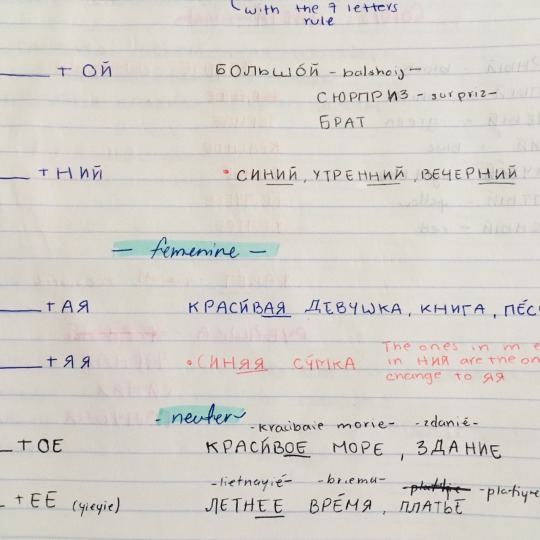 with the 7 letters
rule
+ ОЙ БОЛЬШО́Й - balshoij -
СЮРПРИЗ - surpriz -
БРАТ
+ НИЙ • СИНИЙ, УТРЕННИЙ, ВЕЧЕРНИЙ
- femenine -
+ АЯ КРАСИ́ВАЯ ДЕВУШКА, КНИГА,
+ ЯЯ • СИНЯЯ СУ́МКА
The ones in m
in НИЙ are the
change to ЯЯ
- neuter -
- kraibaie morie - - zdanié -
+ ОЕ КРАСИ́ВОЕ МОРЕ, ЗДАНИЕ
- lietnayié - - briema - - platiye
+ ЕЕ (yieyie) ЛЕТНЕЕ ВРЕ́МЯ, ПЛАТЬЕ